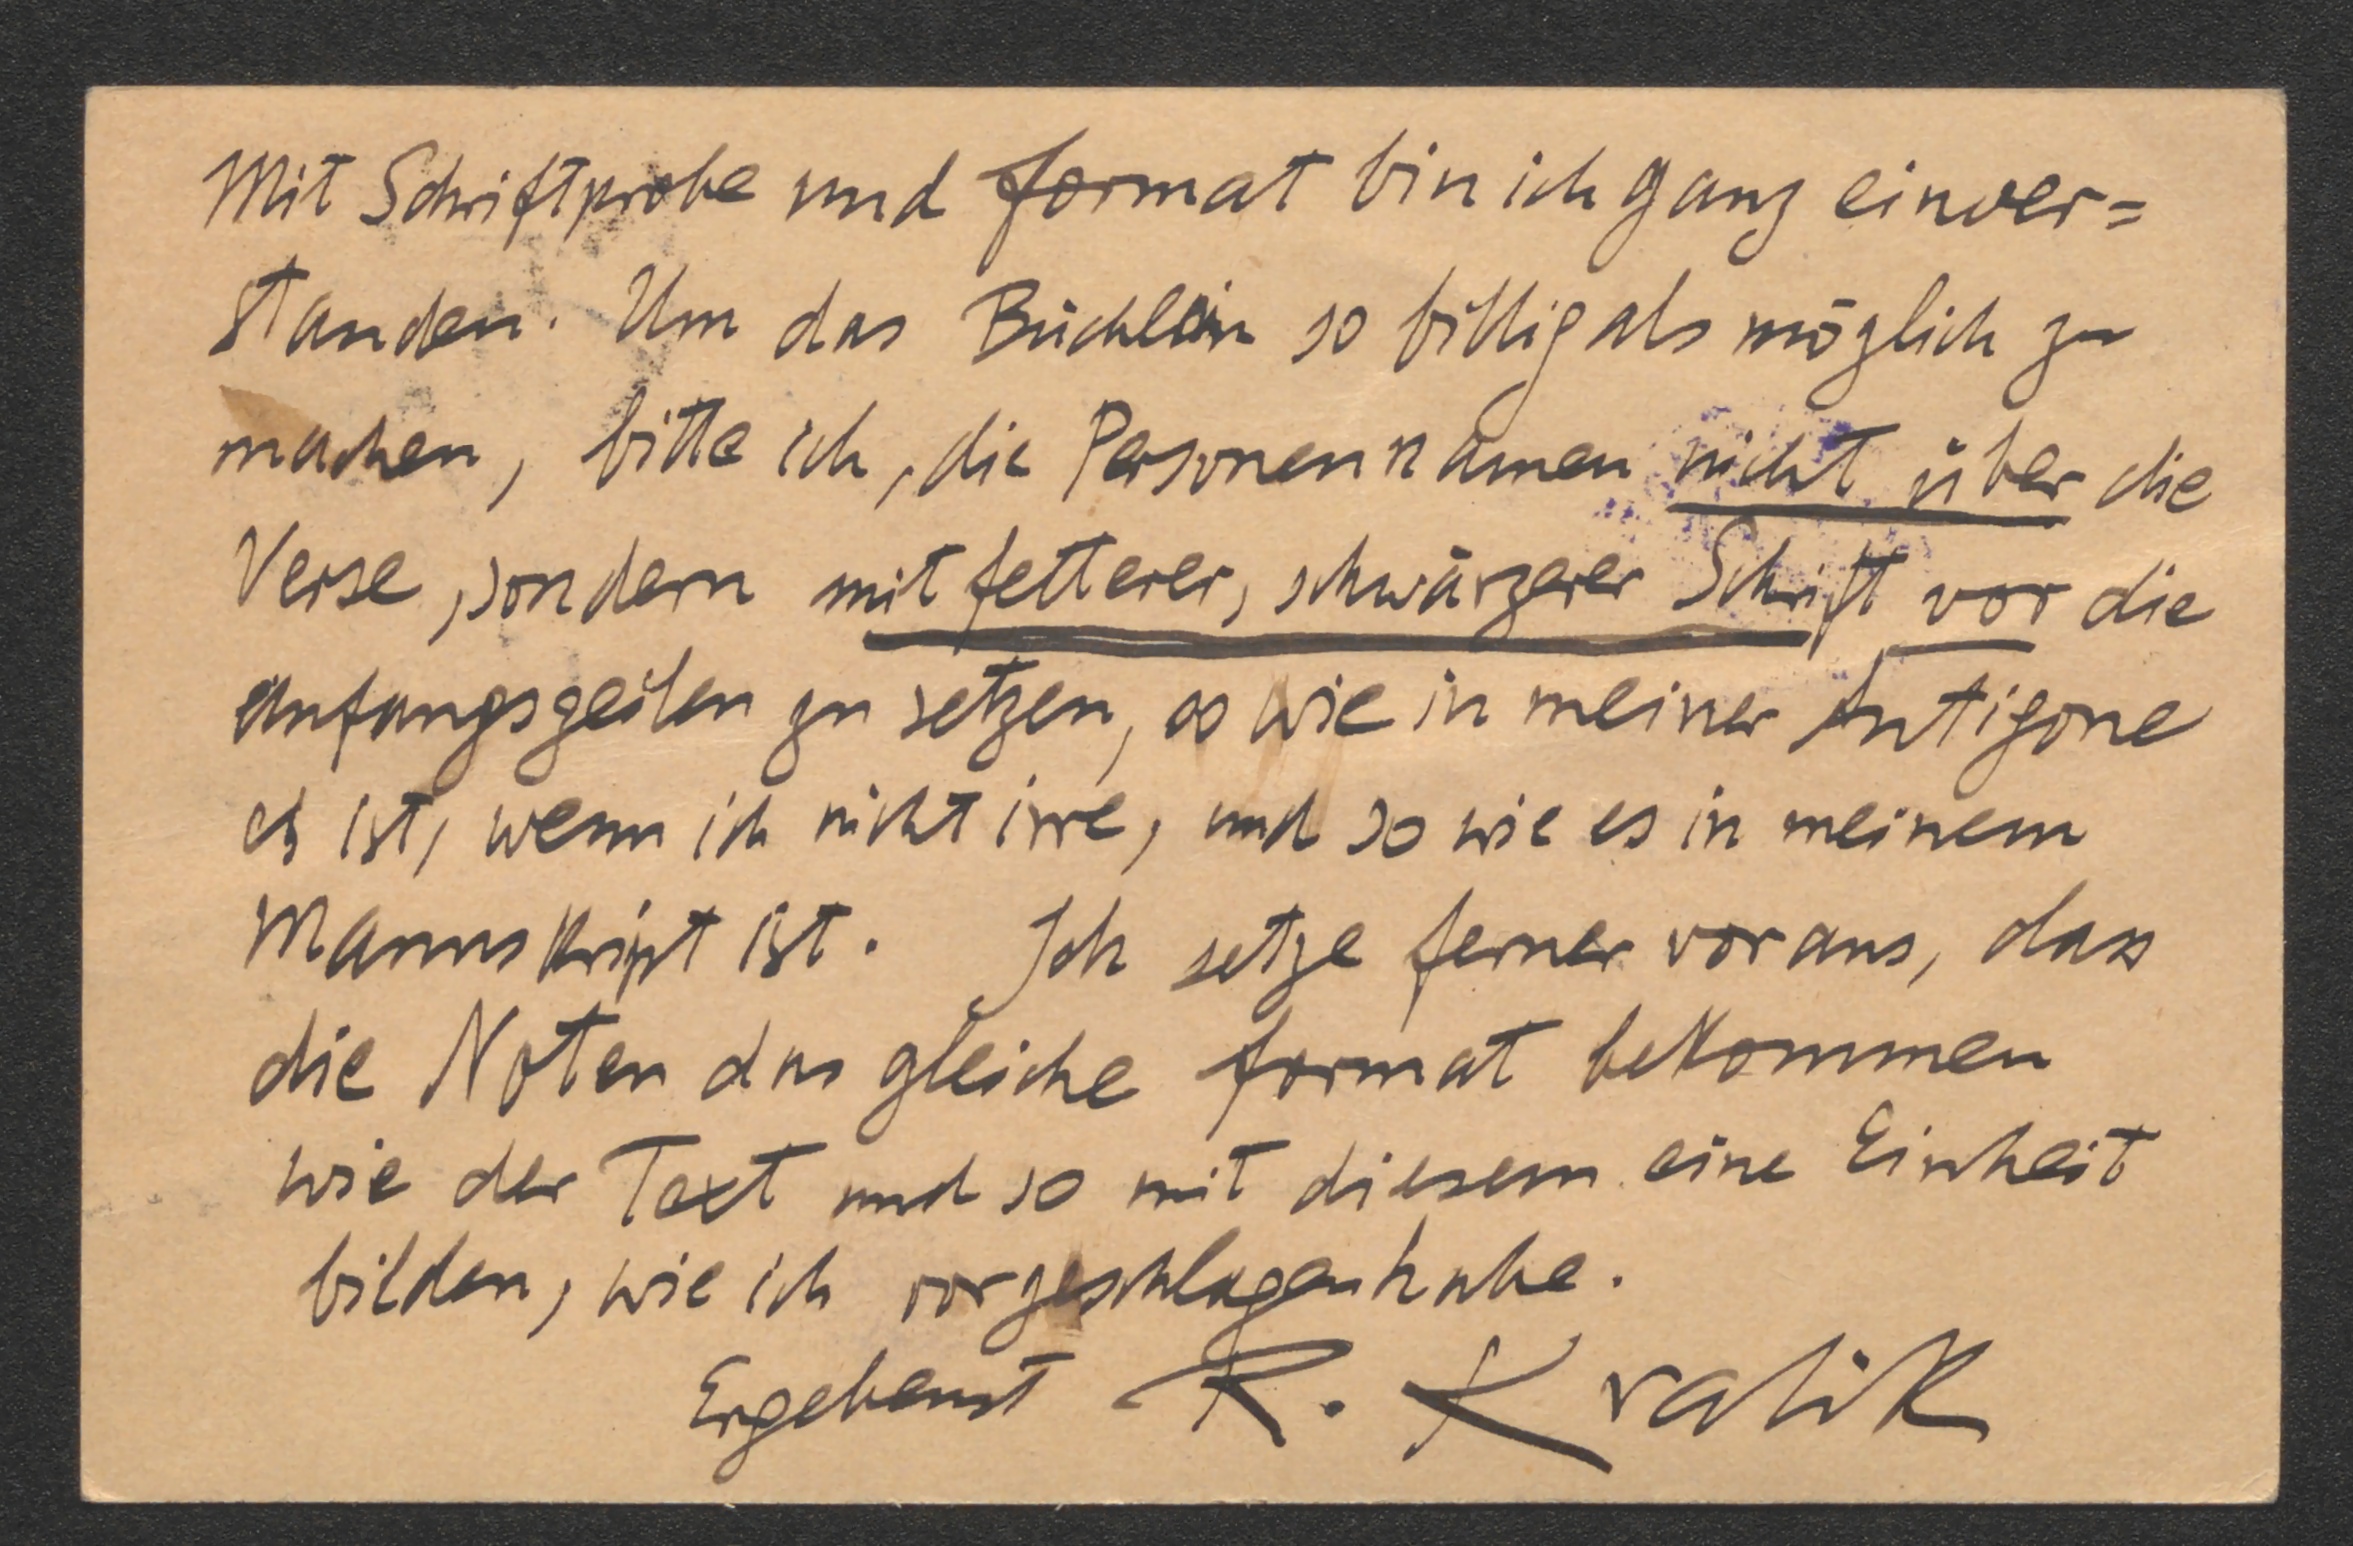 Mit Schriftprobe und Format bin ich ganz einver=
standen. Um das Büchlein so billig als möglich zu
machen, bitte ich, die Personennamen nicht über die
Verse, sondern mit fetterer, schwärzerer Schrift vor die
Anfangszeilen zu setzen, so wie in meiner Antigone
es ist, wenn ich nicht irre, und so wie es in meinem
Manuskript ist. Ich setze ferner voraus, dass
die Noten das gleiche Format bekommen
wie der Text und so mit diesem eine Einheit
bilden, wie ich vorgeschlagen habe.
Ergebenst R. Kralik